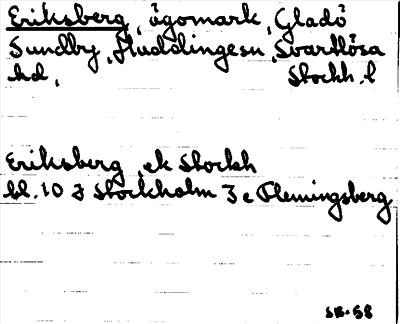 Eriksberg, ägomark, Gladö
Sundby, Huddingesn, Svartlösa
hd, Stockh. l
Eriksberg ek Stockh
bl. 10 J Stockholm 3 e Flemingsberg
SB-58